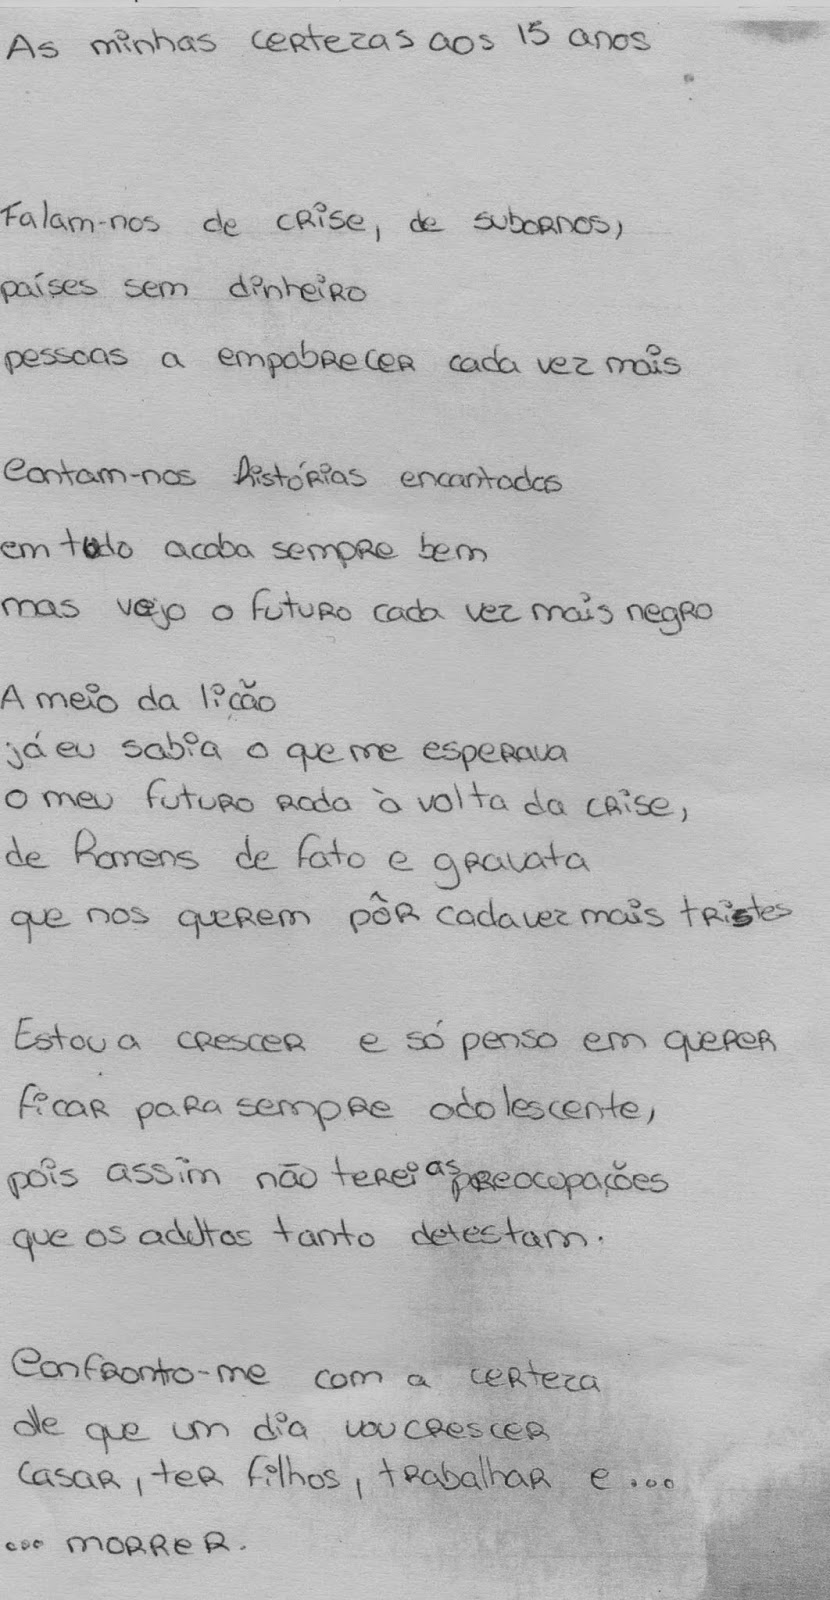 As minhas certezas aos 15 anos
Falam-nos de crise, de subornos,
países sem dinheiro
pessoas a empobrecer cada vez mais
Contam-nos histórias encantadas
em tudo acaba sempre bem
mas vejo o futuro cada vez mais negro
A meio da lição
já eu sabia o que me esperava
o meu futuro roda à volta da crise,
de homens de fato e gravata
que nos querem pôr cada vez mais tristes
Estou a crescer e só penso em querer
ficar para sempre adolescente,
pois assim não terei as preocupações
que os adultos tanto detestam.
Confronto-me com a certeza
de que um dia vou crescer
casar, ter filhos, trabalhar e ...
... morrer.